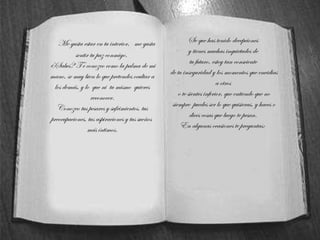 Me gusta estar en tu interior, me gusta
sentir tu paz conmigo.
¿Sabes? Te conozco como la palma de mi
mano, se muy bien lo que pretendes ocultar a
los demás, y lo que ni tu mismo quieres
reconocer.
Conozco tus pesares y sufrimientos, tus
preocupaciones, tus aspiraciones y tus sueños
más íntimos.
Se que has tenido decepciones
y tienes muchas inquietudes de
tu futuro, estoy tan consciente
de tu inseguridad y los momentos que envidias
a otros
o te sientes inferior, que entiendo que no
siempre puedes ser lo que quisieras, y haces o
dices cosas que luego te pesan.
En algunas ocasiones te preguntas: